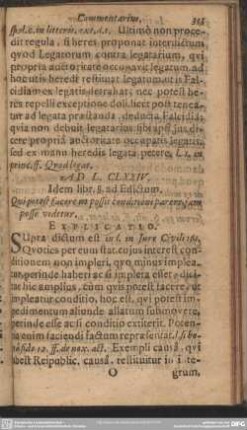 Commentarius. 313
ff. d. t. in litteris, ext. d. t. Ultimò non proce-
dit regula, si heres proponat interdictum
quod Legatorum contra legatarium, qui
propria auctoritate occupavit legatum, ad
hoc utis heredi restituat legatum, ut is Fal-
cidiam ex legatis detrahat; nec potest he-
res repelli exceptione doli, licet post tenea-
tur ad legata præstanda, deducta Falcidia;
quia non debuit legatarius sibi ipsi jus di-
cere propria auctoritate occupatis legatis,
sed ex manu heredis legata petere, L. 1. in
princ. ff. Quod legat.
AD L. CLXXIV.
Idem libr. 8. ad Edictum.
Qui potest facere ut possit conditioni parere, jam
posse videtur.
EXPLICATIO.
Supra dictum est in L. in Jure Civili 161.
Quoties per eum stat, cujus interest con-
ditionem non impleri, quo minus implea-
tur, perinde haberi ac si impleta esset; dici-
tur hic amplius, eum qui potest facere, ut
impleatur conditio, hoc est, qui potest im-
pedimentum aliunde allatum submovere,
perinde esse ac si conditio extiterit. Poten-
tia enim faciendi factum repræsentat,
ff. de nox. act. Exempli causâ, qui
abest Reipublic. causâ, restituitur in inte-
O grum,